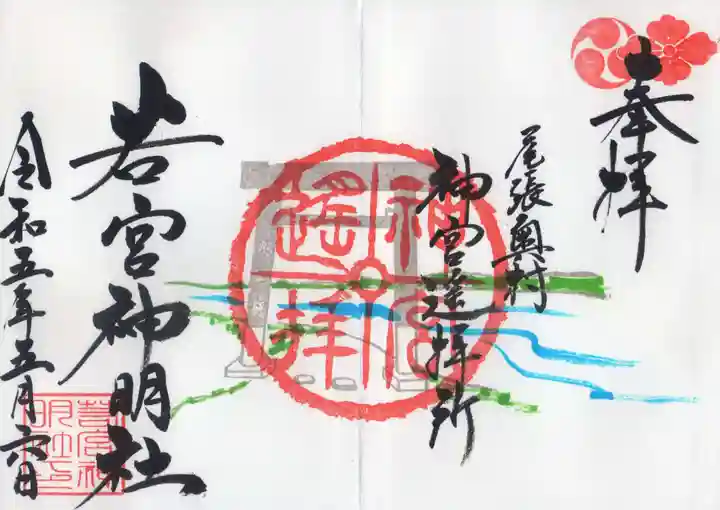 奉拝
尾張奥村
神宮遥拝所
神宮
遥拝
若宮神明社
令和五年五月六日
若宮神
明社印